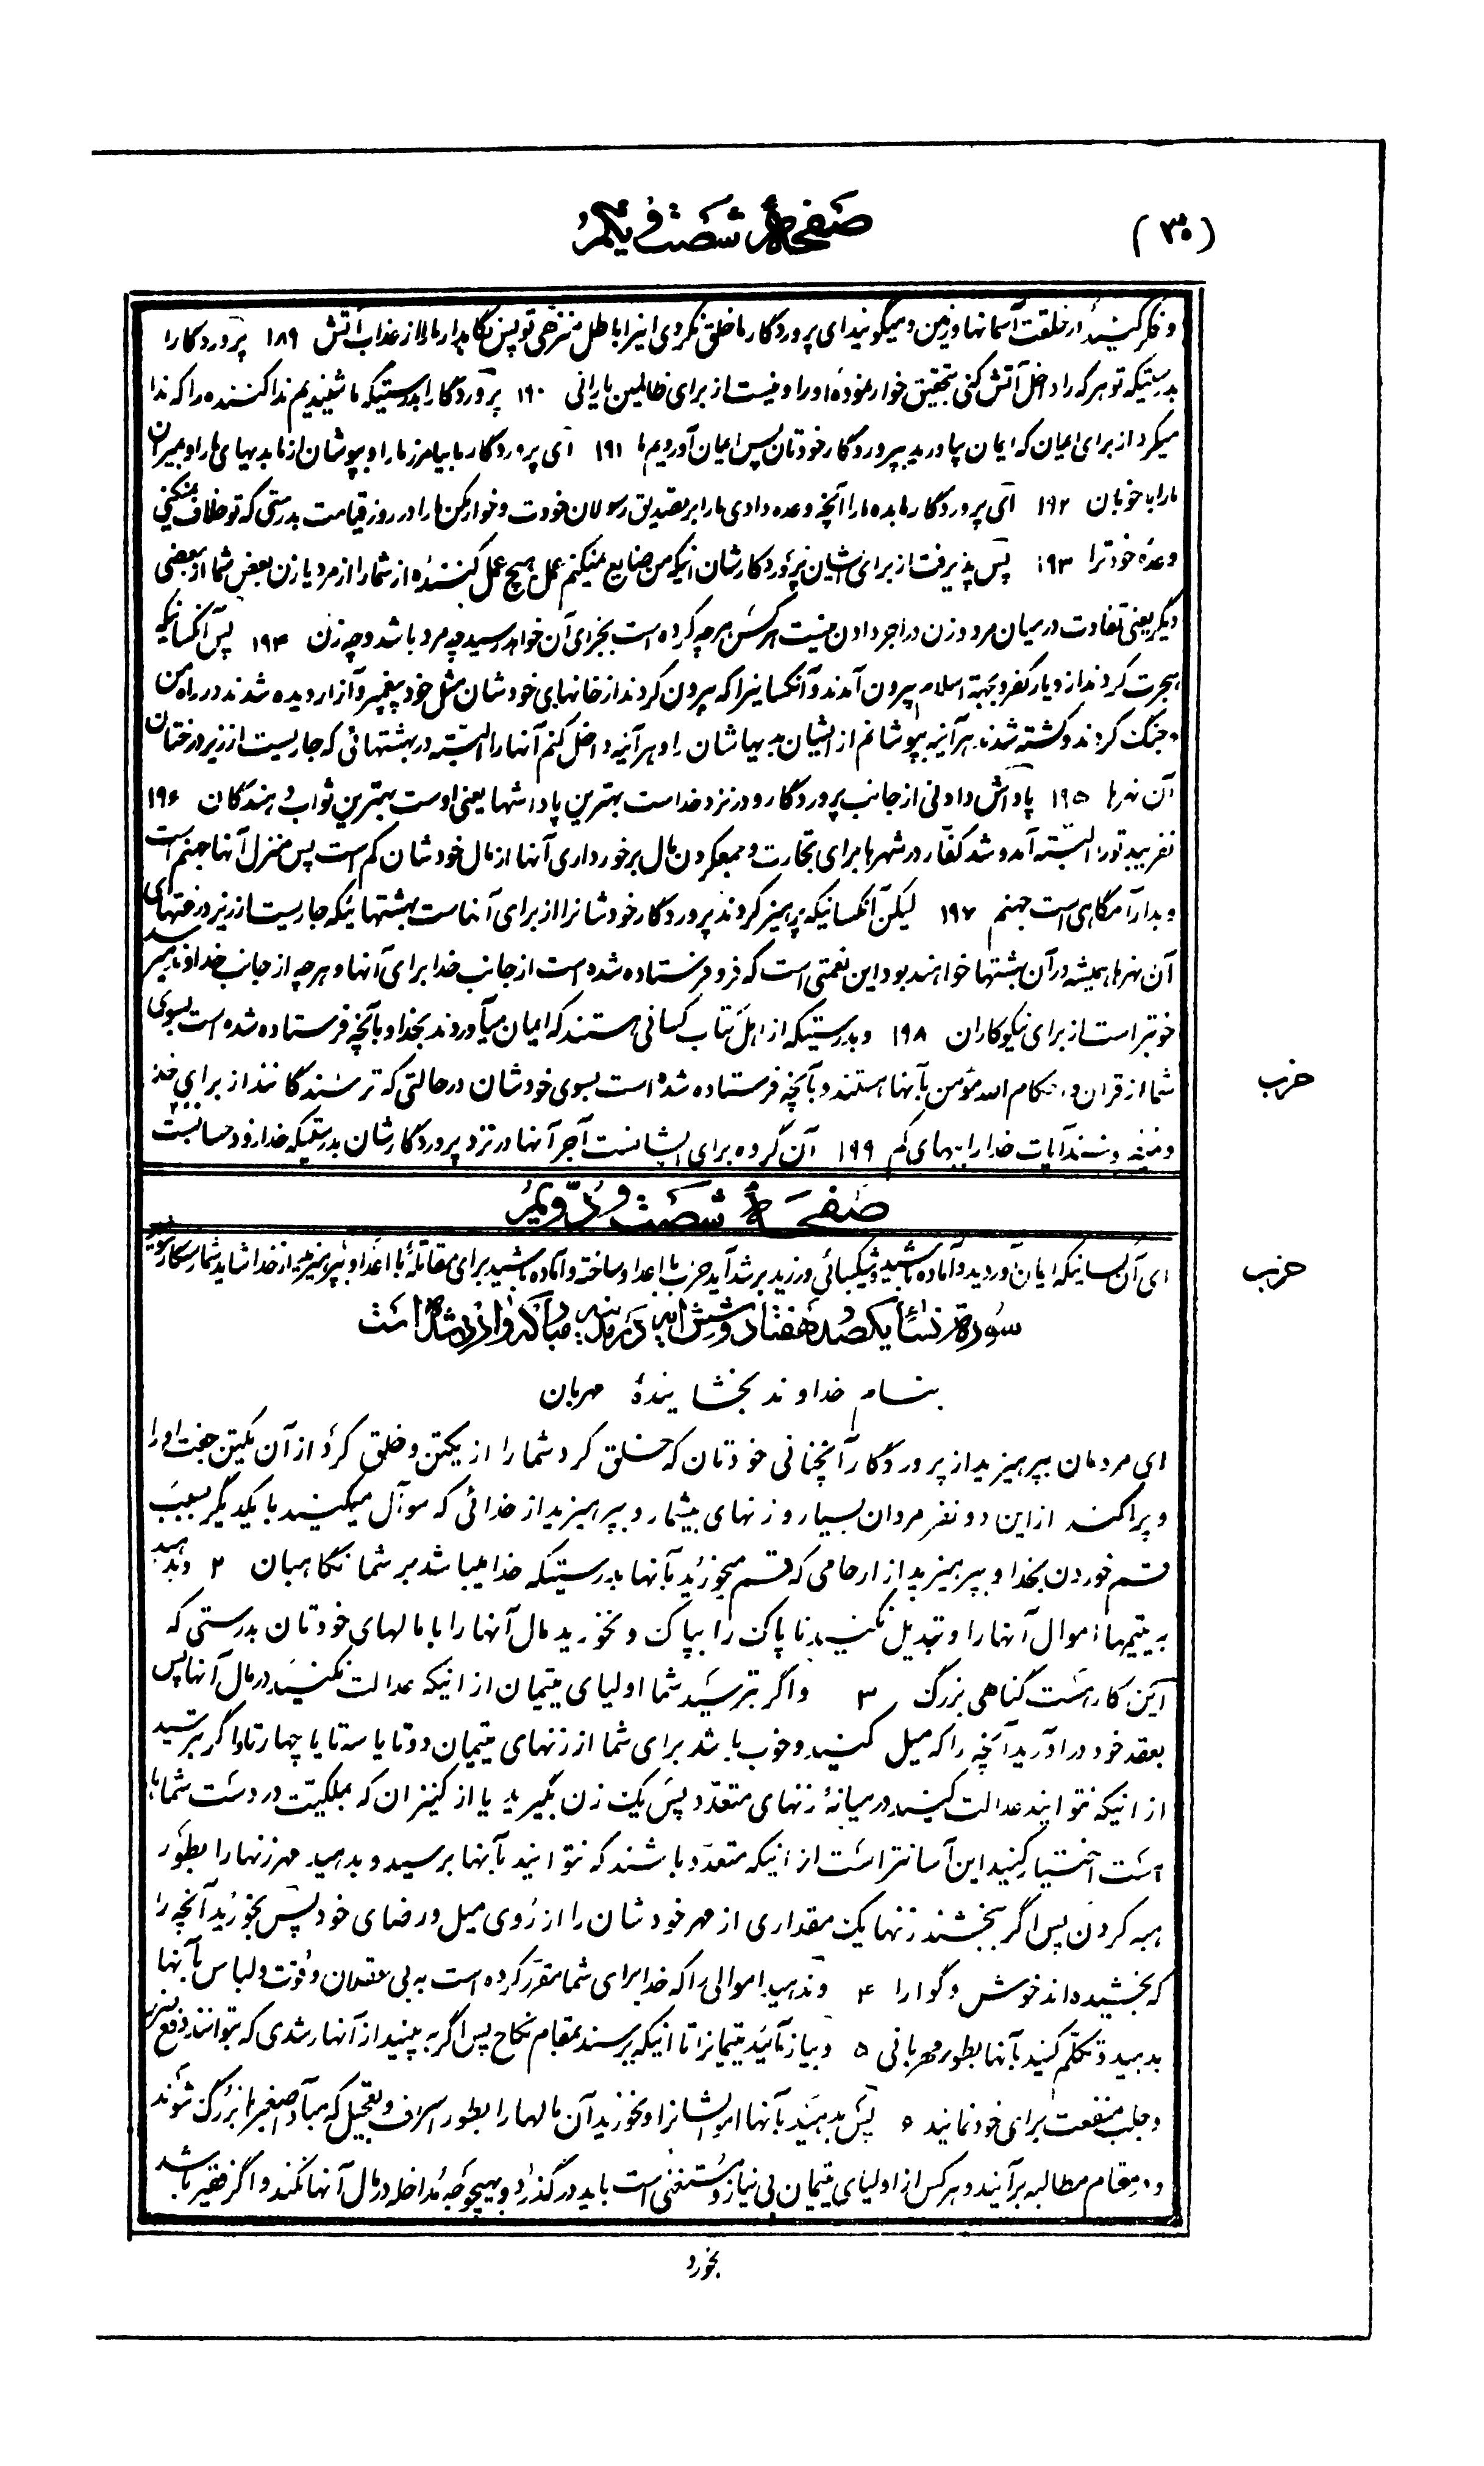 (۳۵)
صفحهٔ شصت و یکم
و فکر کنید در خلقت آسمانها و زمین و میگویند ای پروردگار ما خلق نکردی اینرا باطل منزهی تو پس نگاهدار ما را از عذاب آتش ۱۸۹ پروردگارا
بدرستیکه تو هر که را داخل آتش کنی بتحقیق خوار نمودهٔ او را و نیست از برای ظالمین یارانی ۱۹۰ پروردگارا بدرستیکه ما شنیدیم ندا کننده را که ندا
میکرد از برای ایمان که ایمان بیاورید بپروردگار خودتان پس ایمان آوردیم ما ۱۹۱ ای پروردگار ما بیامرز ما را و بپوشان از ما بدیهای ما را و بمیران
ما را با خوبان ۱۹۲ ای پروردگار ما بده ما را آنچه وعده دادی ما را بر تصدیق رسولان خودت و خوار مکن ما را در روز قیامت بدرستی که تو خلاف نمیکنی
وعدهٔ خود ترا ۱۹۳ پس پذیرفت از برای ایشان پروردگارشان اینکه من ضایع نمیکنم عمل هیچ عمل کنندهٔ از شما را از مرد یا زن بعض شما از بعضی
دیگر یعنی تفاوت در میان مرد و زن در اجر دادن نیست هر کس هر چه کرده است بجزای آن خواهد رسید چه مرد باشد و چه زن ۱۹۴ پس آنکسانیکه
هجرت کردند از دیار کفر و بجهة اسلام بیرون آمدند و آنکسانیرا که بیرون کردند از خانهای خودشان مثل خود پیغمبر و آزار دیده شدند در راه من
و جنگ کردند و کشته شدند هر آینه بپوشانم از ایشان بدیهاشان را و هر آینه داخل کنم آنها را البته در بهشتهائی که جاریست از زیر درختان
آن نهرها ۱۹۵ پاداش دادنی از جانب پروردگار و در نزد خداست بهترین پاداشها یعنی اوست بهترین ثواب دهندگان ۱۹۶
نفریبد تو را البته آمد و شد کفار در شهرها برای تجارت و جمعکردن مال برخورداری آنها از مال خودشان کم است پس منزل آنها جهنم است
و بد آرامگاهی است جهنم ۱۹۷ لیکن آنکسانیکه پرهیز کردند پروردگار خودشانرا از برای آنهاست بهشتهائیکه جاریست از زیر درختهای
آن نهرها همیشه در آن بهشتها خواهند بود این نعمتی است که فرو فرستاده شده است از جانب خدا برای آنها و هر چه از جانب خداوند میرسد
خوبتر است از برای نیکوکاران ۱۹۸ و بدرستیکه از اهل کتاب کسانی هستند که ایمان میآوردند بخدا و بآنچه فرستاده شده است بسوی
شما از قران و کلام الله مؤمن بآنها هستند و بآنچه فرستاده شده است بسوی خودشان در حالتی که ترسندگانند از برای خدا
و نمیفروشند آیات خدا را ببهای کم ۱۹۹ آن گروه برای ایشانست اجر آنها در نزد پروردگارشان بدرستیکه خدا زود حسابست
حزب
صفحهٔ شصت و دویم
ای آن کسانیکه ایمان آوردید و آماده باشید و شکیبائی ورزید بر شداید حزب با اعدا و ساخته و آماده باشید برای مقاتلهٔ با اعدا و بپرهیزید از خدا شاید شما رستگار شوید
حزب
سورة نساء یکصد هفتاد و شش آیه در مدینه مبارکه وارد شده است
بنام خداوند بخشایندهٔ مهربان
ای مردمان بپرهیزید از پروردگار آنچنانی خودتان که خلق کرد شما را از یکتن و خلق کرد از آن یکتن جفت او را
و پراکند از این دو نفر مردان بسیار و زنهای بیشمار و بپرهیزید از خدائی که سوآل میکنید با یکدیگر بسبب
قسم خوردن بخدا و بپرهیزید از ارحامی که قسم میخورید بآنها بدرستیکه خدا میباشد بر شما نگاهبان ۲ و بدهید
به یتیمها اموال آنها را و تبدیل نکنید ناپاک را بپاک و نخورید مال آنها را با مالهای خودتان بدرستی که
این کار هست گناهی بزرگ ۳ و اگر بترسید شما اولیای یتیمان از اینکه عدالت نکنید در مال آنها پس
بعقد خود در آورید آنچه را که میل کنید و خوب باشد برای شما از زنهای یتیمان دو تا یا سه تا یا چهار تا و اگر بترسید
از اینکه نتوانید عدالت کنید در میانهٔ زنهای متعدد پس یک زن بگیرید یا از کنیزان که بملکیت در دست شماها
است اختیار کنید این آسانتر است از اینکه متعدد باشند که نتوانید بآنها برسید و بدهید مهر زنها را بطور
هبه کردن پس اگر ببخشند زنها یک مقداری از مهر خودشان را از روی میل و رضای خود پس بخورید آنچه را
که بخشیده‌اند خوش و گوارا ۴ و ندهید اموالی را که خدا برای شما مقرر کرده است به بی عقلان و قوت و لباس بآنها
بدهید و تکلم کنید بآنها بطور مهربانی ۵ و بیازمائید یتیمانرا تا اینکه برسند بمقام نکاح پس اگر به بینید از آنها رشدی که بتوانند دفع ضرر
و جلب منفعت برای خود نمایند ۶ پس بدهید بآنها اموالشانرا و نخورید آن مالها را بطور اسراف و تعجیل که مبادا صغیرها بزرگ شوند
و در مقام مطالبه برآیند و هر کس از اولیای یتیمان بی نیاز و مستغنی است باید در گذرد و بهیچوجه مداخله در مال آنها نکند و اگر فقیر باشد
بخورد